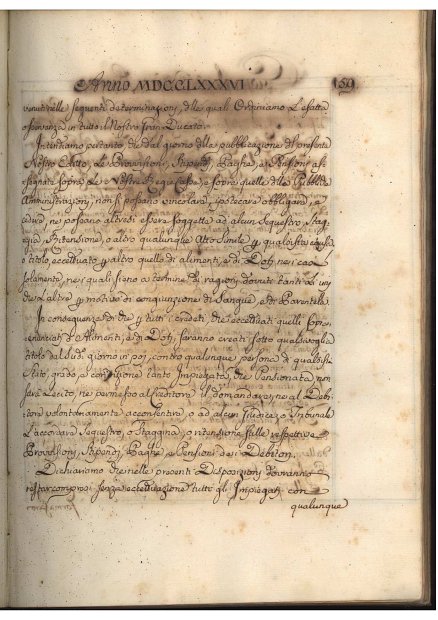 Anno MDCCLXXXXVI 159
venuti nelle seguenti determinazioni, delle quali Ordiniamo l'esatta
osservanza in tutto il Nostro Gran Ducato
Intendiamo pertanto che dal giorno della pubblicazione del presente
Nostro Editto, Le Provvisioni, Stipendj, Paghe, e Pensioni as-
segnate sopra le Nostre Regie Casse, e sopra quelle delle Pubbliche
Amministrazioni, non si possano vincolare, ipotecare obbligare, e
cedere, ne possano altresì essere soggette ad alcun Sequestro, Stag-
gina, Intensione, o altro qualunque Atto Simile p qualsisia causa
o titolo, eccettuato p altro quello di alimenti, e di Doti nei casi
solamente, nei quali siano a termine di ragione dovuti tanti
p motivo di congiunzione di Sangue, e di Parentela
In conseguenza di che p tutti i crediti, che eccettuati quelli sopra
enunciati d'Alimenti, e di Doti, saranno creati sotto qualsivoglia
titolo dal Sud.o giorno in poi, contro qualunque persona di qualsisia
Stato, grado, e condizione tanto Impiegata, che Pensionata non
sarà Lecito, ne permesso al Creditore il domandare, ne al Debi
tore volontariamente acconsentire, o ad alcun Giudice, o Tribunale
l'accordare Sequestro, o Staggina, o ritensione sulle respettive
Provvisioni, Stipendj, Paghe, e Pensioni dei Debitori.
Dichiariamo che nelle presenti Disposizioni dovranno
restar compresi senza eccettuazione tutti gli Impiegati con
qualunque